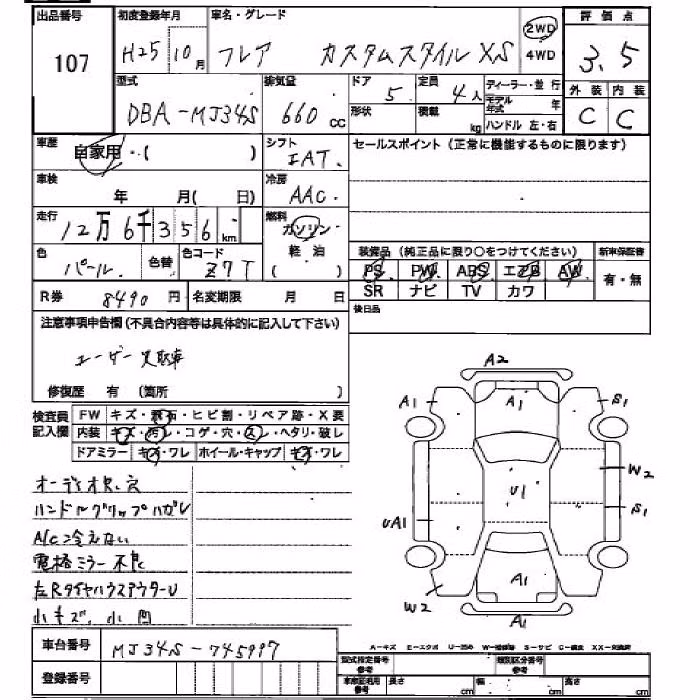 出品番号 初度登録年月 車名・グレード 評価点
107 H25 10月 フレア カスタムスタイル XS 2WD 4WD 3.5
型式 排気量 ドア 定員 ディーラー・並行 外装 内装
DBA-MJ34S 660cc 5 4人 モデル年式 年 C C
形状 積載 kg ハンドル 左・右
車歴 自家用・( ) シフト IAT. セールスポイント(正常に機能するものに限ります)
車検 年 月(日) 冷房 AAC.
走行 12万6千356km 燃料 ガソリン
軽油
( )
色 パール. 色替 色コード Z7T
装備品(純正品に限り○をつけてください) 新車保証書
PS PW ABS エアB AW 有・無
SR ナビ TV カワ
R券 8490円 名変期限 月 日 後日品
注意事項申告欄(不具合内容等は具体的に記入して下さい)
ユーザー買取車
修復歴 有 (箇所 )
検査員記入欄 FW キズ・飛石・ヒビ割・リペア跡・X要
内装 キズ・汚レ・コゲ・穴・スレ・ヘタリ・破レ
ドアミラー キズ・ワレ ホイール・キャップ キズ・ワレ
オーディオ欠.穴
ハンドルグリップハガレ
A/C冷えない
電格ミラー不良
左RタイヤハウスアウターU
小キズ.小凹
A2
A1 A1 S1
W2
UA1 U1 S1
W2 A1
A1
車台番号 MJ34S-745997
登録番号
A-キズ E-エクボ U-凹み W-補修跡 S-サビ C-腐食 XX-交換済
型式指定番号 参考 類別区分番号 参考
車庫証明用 参考 長さ cm 幅 cm 高さ cm